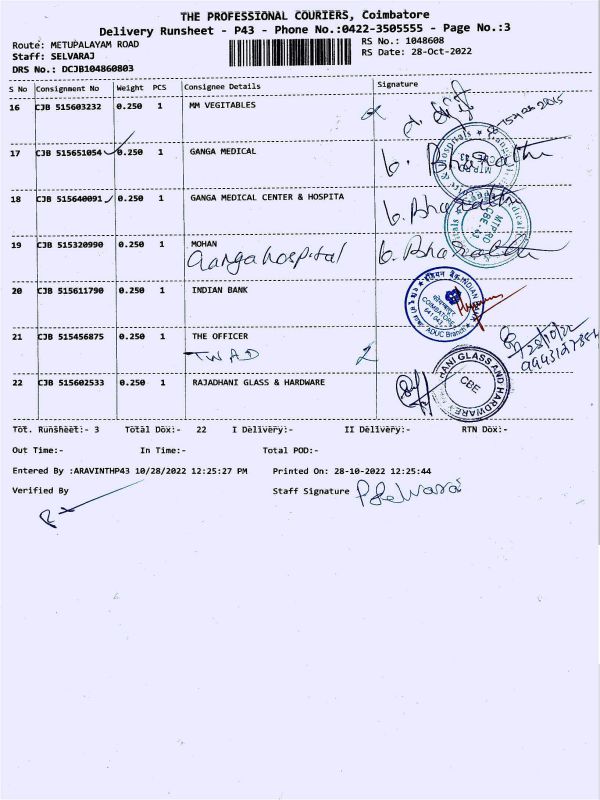 THE PROFESSIONAL COURIERS, Coimbatore
Delivery Runsheet - P43 - Phone No.:0422-3505555 - Page No.:3
Route: METUPALAYAM ROAD
RS No.: 1048608
Staff: SELVARAJ
RS Date: 28-Oct-2022
DRS No.: DCJB104860803
S No Consignment No Weight PCS Consignee Details Signature
16 CJB 515603232 0.250 1 MM VEGITABLES
17 CJB 515651054 0.250 1 GANGA MEDICAL b. Bharathi
18 CJB 515640091 0.250 1 GANGA MEDICAL CENTER & HOSPITA b. Bharathi
19 CJB 515320990 0.250 1 MOHAN b. Bharathi
Ganga hospital
20 CJB 515611790 0.250 1 INDIAN BANK
INDIAN
COIMBATORE
641 043
ADUC Branch
21 CJB 515456875 0.250 1 THE OFFICER
TWAD
22 CJB 515602533 0.250 1 RAJADHANI GLASS & HARDWARE
GLASS AND HARDWARE
CBE
Tot. Runsheet:- 3 Total Dox:- 22 I Delivery:- II Delivery:- RTN Dox:-
Out Time:- In Time:- Total POD:-
Entered By :ARAVINTHP43 10/28/2022 12:25:27 PM Printed On: 28-10-2022 12:25:44
Verified By Staff Signature P Selvaraj